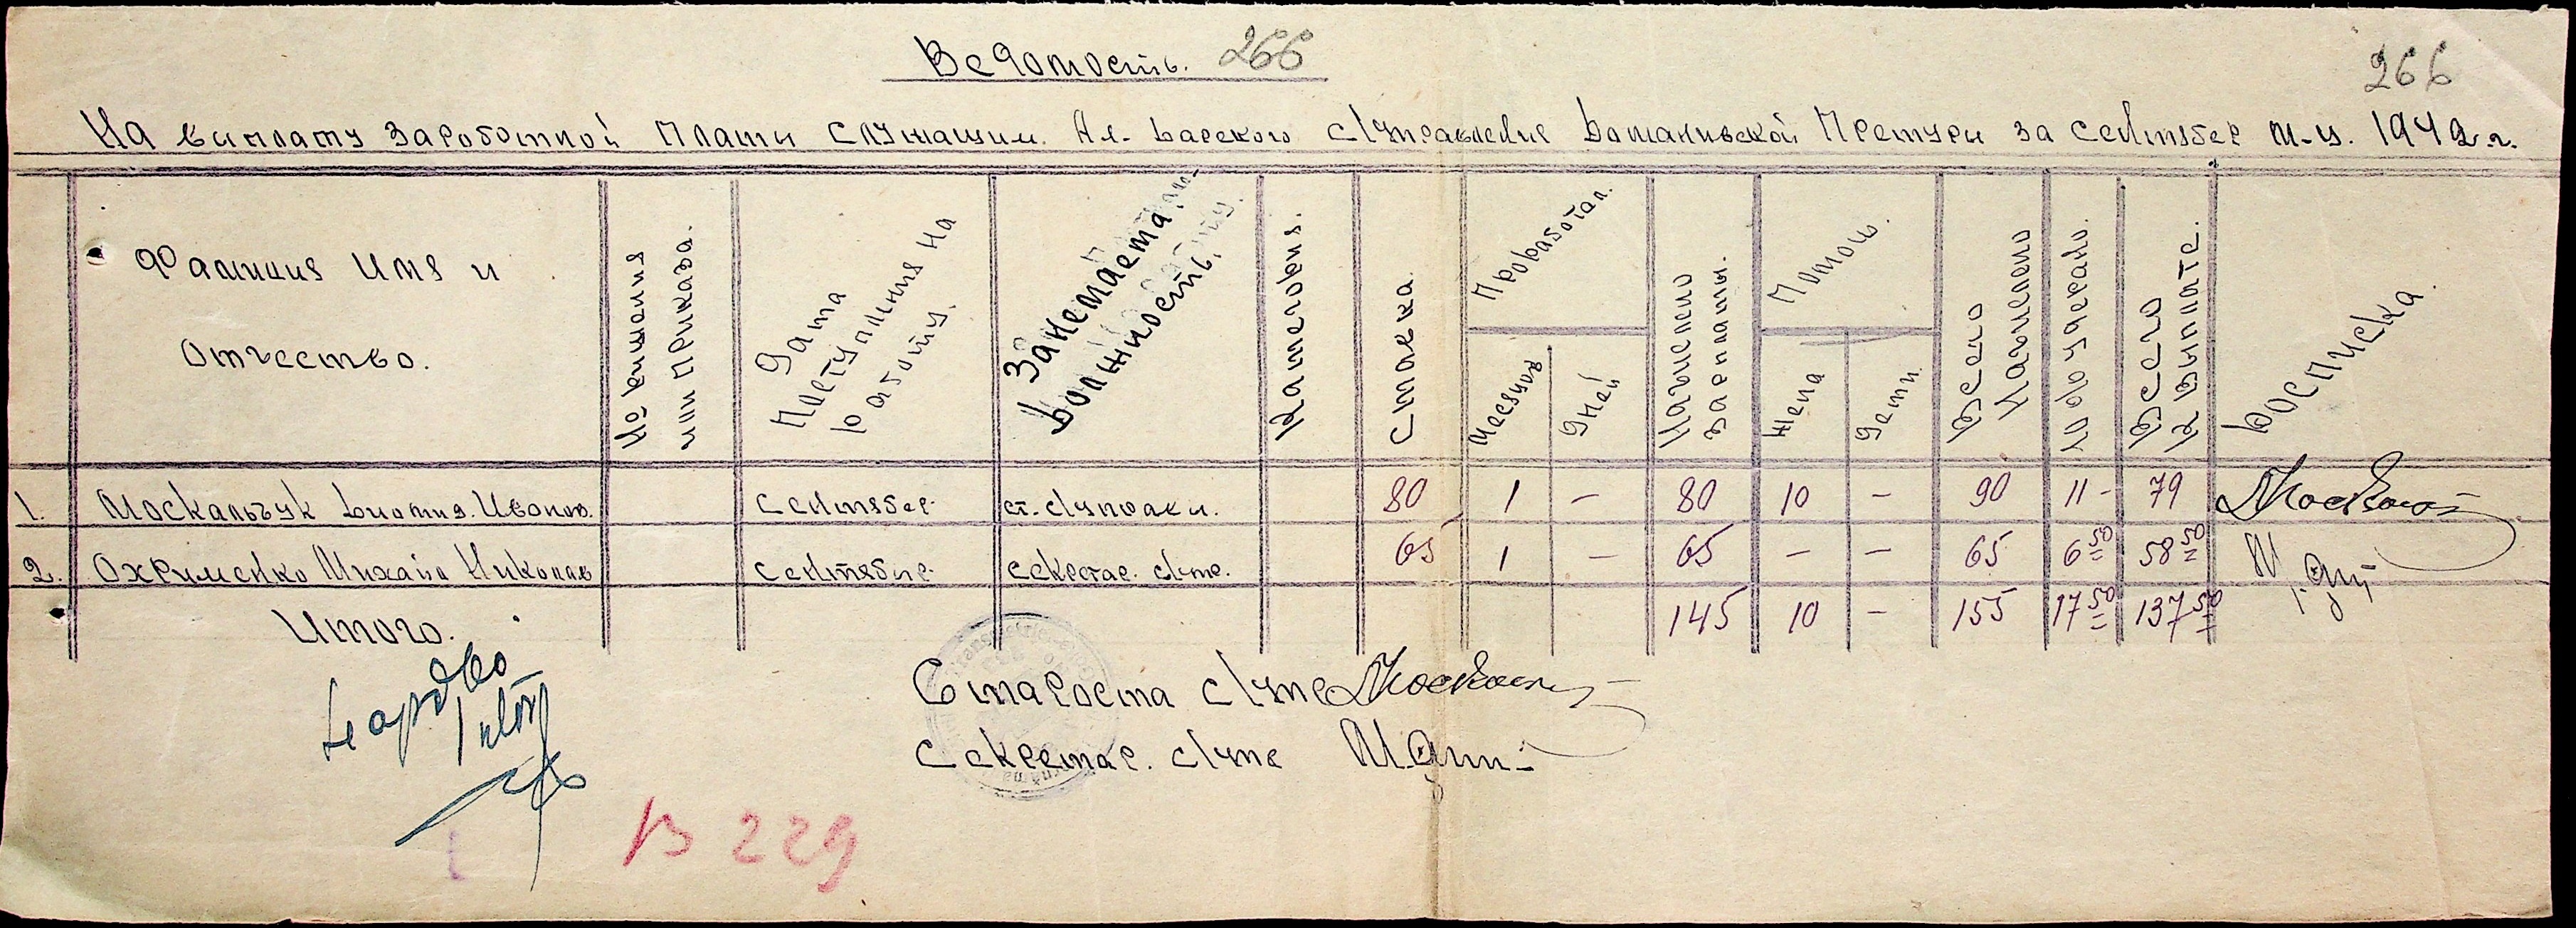 Ведомость. 266
266
На виплату заработной плати служащим. Ал- Барского с/управление Томашпивской Претуры за сентябер м-ц. 1942 г.
Фамилия Имя и
Отчество.
№ решения
или приказа.
Дата
поступления на
работу.
Занемаета
должность.
Категория.
Ставка.
Проработал.
Месяцов
Дней
Начислено
зарплаты.
Помощь.
Жена
Дети.
Всего
Начислено
Удержано.
Всего
к выплате.
Росписка.
1. Москальчук Иванов. Сентябер ст. с/управи. 80 1 – 80 10 – 90 11 - 79
2. Охрименко Михаил Николав Сентябре секретар. с/упр. 65 1 – 65 – – 65 6 50 58 50
Итого. 145 10 – 155 17 50 137 50
Староста с/упр
Секретар. с/упр
В 229